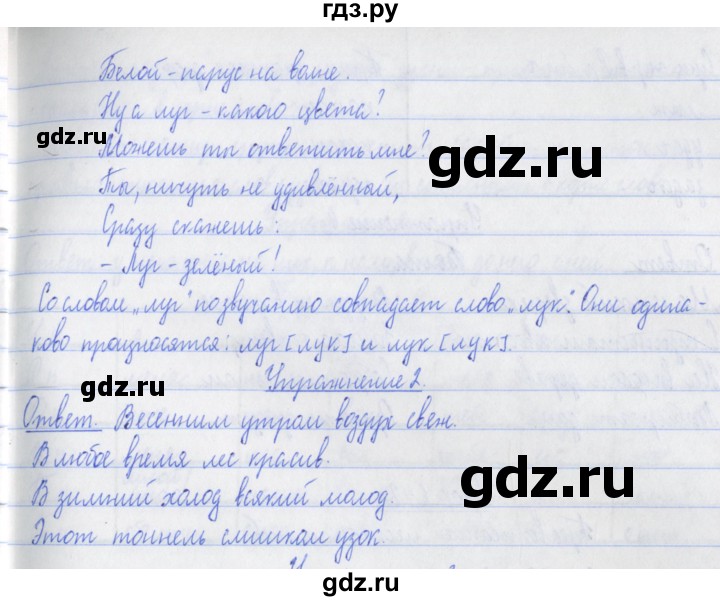 гдз.ру
Белой - парус на волне.
Ну а луг - какого цвета?
gdz.ru
Можешь ты ответить мне?
gdz.ru
Ты, ничуть не удивлённый,
Сразу скажешь:
- Луг - зелёный!
Со словом „луг" по звучанию совпадает слово „лук". Они одина-
ково произносятся: луг [лук] и лук [лук].
gdz.ru
Упражнение 2.
Ответ. Весенним утром воздух свеж.
В любое время лес красив.
gdz.ru
В зимний холод всякий молод.
Этот тоннель слишком узок.
gdz.ru